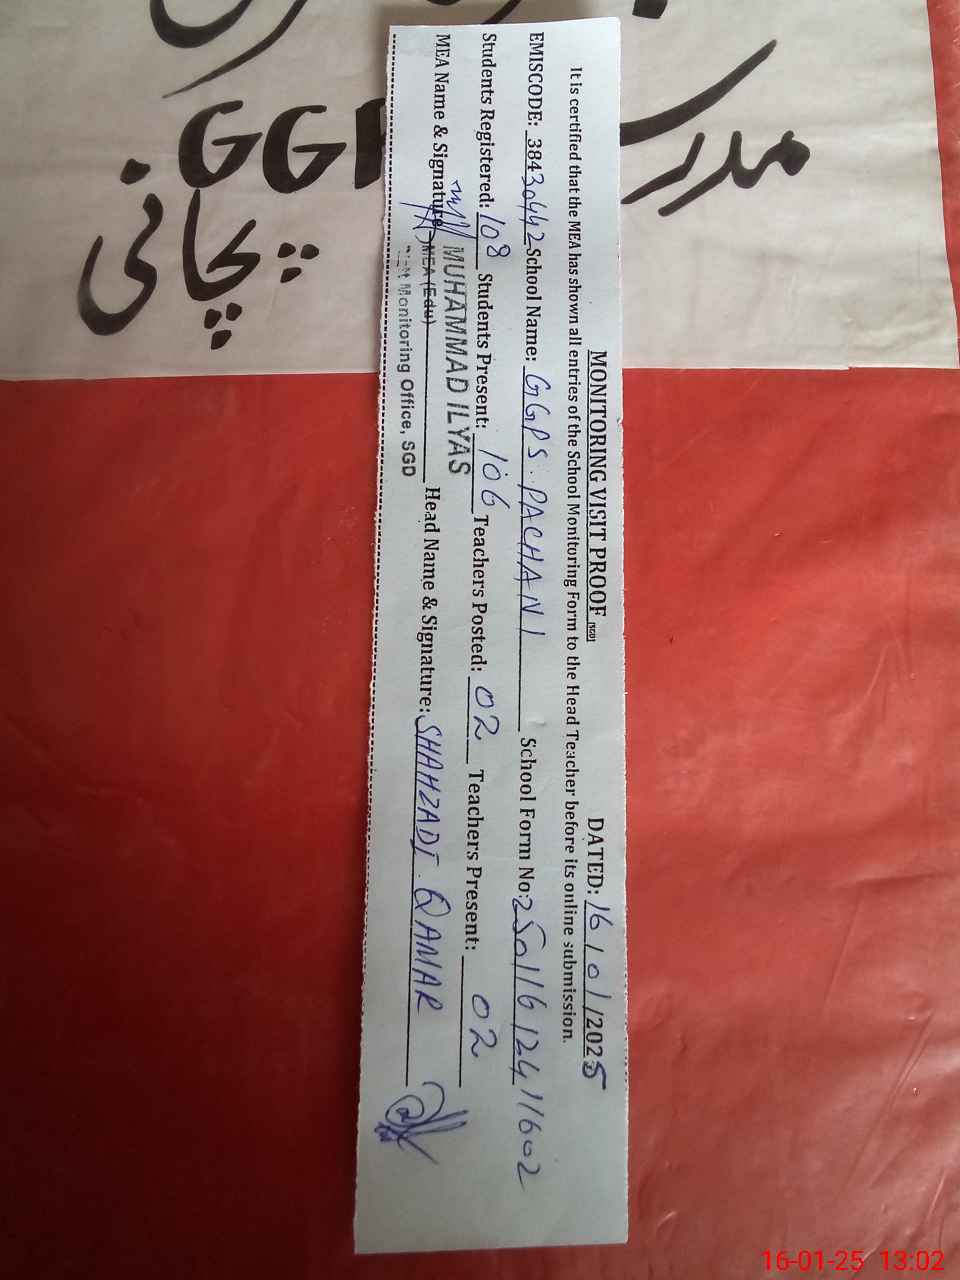 مدرسہ
GG
پچانی
MONITORING VISIT PROOF (SGD) DATED: 16/01/2025
It is certified that the MEA has shown all entries of the School Monitoring Form to the Head Teacher before its online submission.
EMISCODE: 38430442 School Name: GGPS. PACHANI School Form No: 25011612411602
Students Registered: 108 Students Present: 106 Teachers Posted: 02 Teachers Present: 02
MUHAMMAD ILYAS
MEA Name & Signature: MEA (Edu) Head Name & Signature: SHAHZADI. QAMAR
Monitoring Office, SGD
16-01-25 13:02